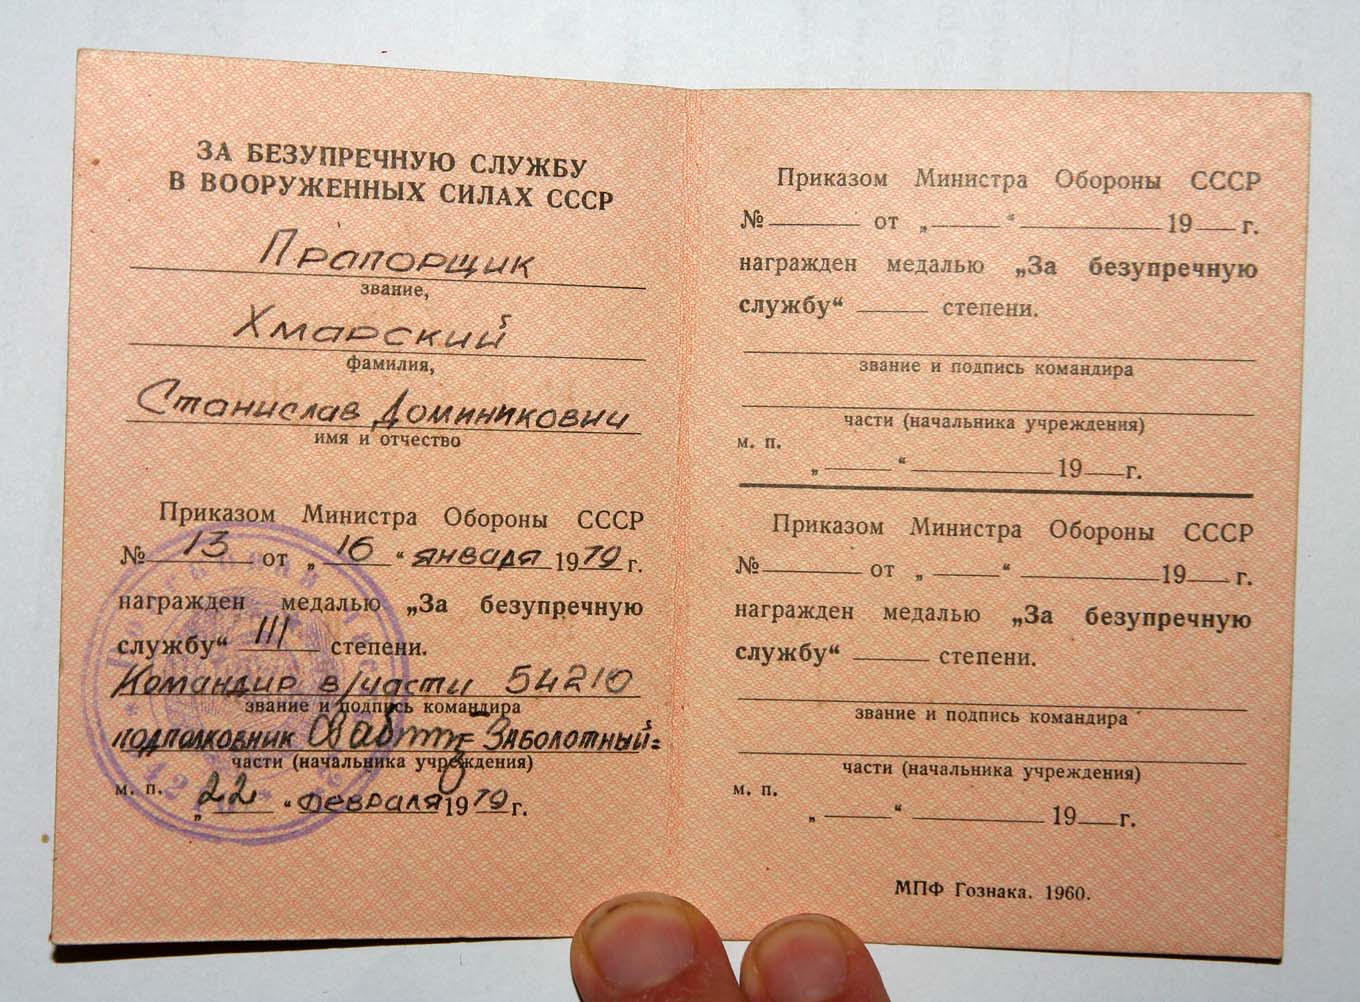 ЗА БЕЗУПРЕЧНУЮ СЛУЖБУ
В ВООРУЖЕННЫХ СИЛАХ СССР
Прапорщик
звание,
Хмарский
фамилия,
Станислав Доминикович
имя и отчество
Приказом Министра Обороны СССР
№ 13 от „16“ января 1979 г.
награжден медалью „За безупречную
службу“ III степени.
Командир в/части 54210
звание и подпись командира
подполковник Заболотный
части (начальника учреждения)
м. п.
„22“ февраля 1979 г.
Приказом Министра Обороны СССР
№ от „ “ 19 г.
награжден медалью „За безупречную
службу“ степени.
звание и подпись командира
части (начальника учреждения)
м. п.
„ “ 19 г.
Приказом Министра Обороны СССР
№ от „ “ 19 г.
награжден медалью „За безупречную
службу“ степени.
звание и подпись командира
части (начальника учреждения)
м. п.
„ “ 19 г.
МПФ Гознака. 1960.